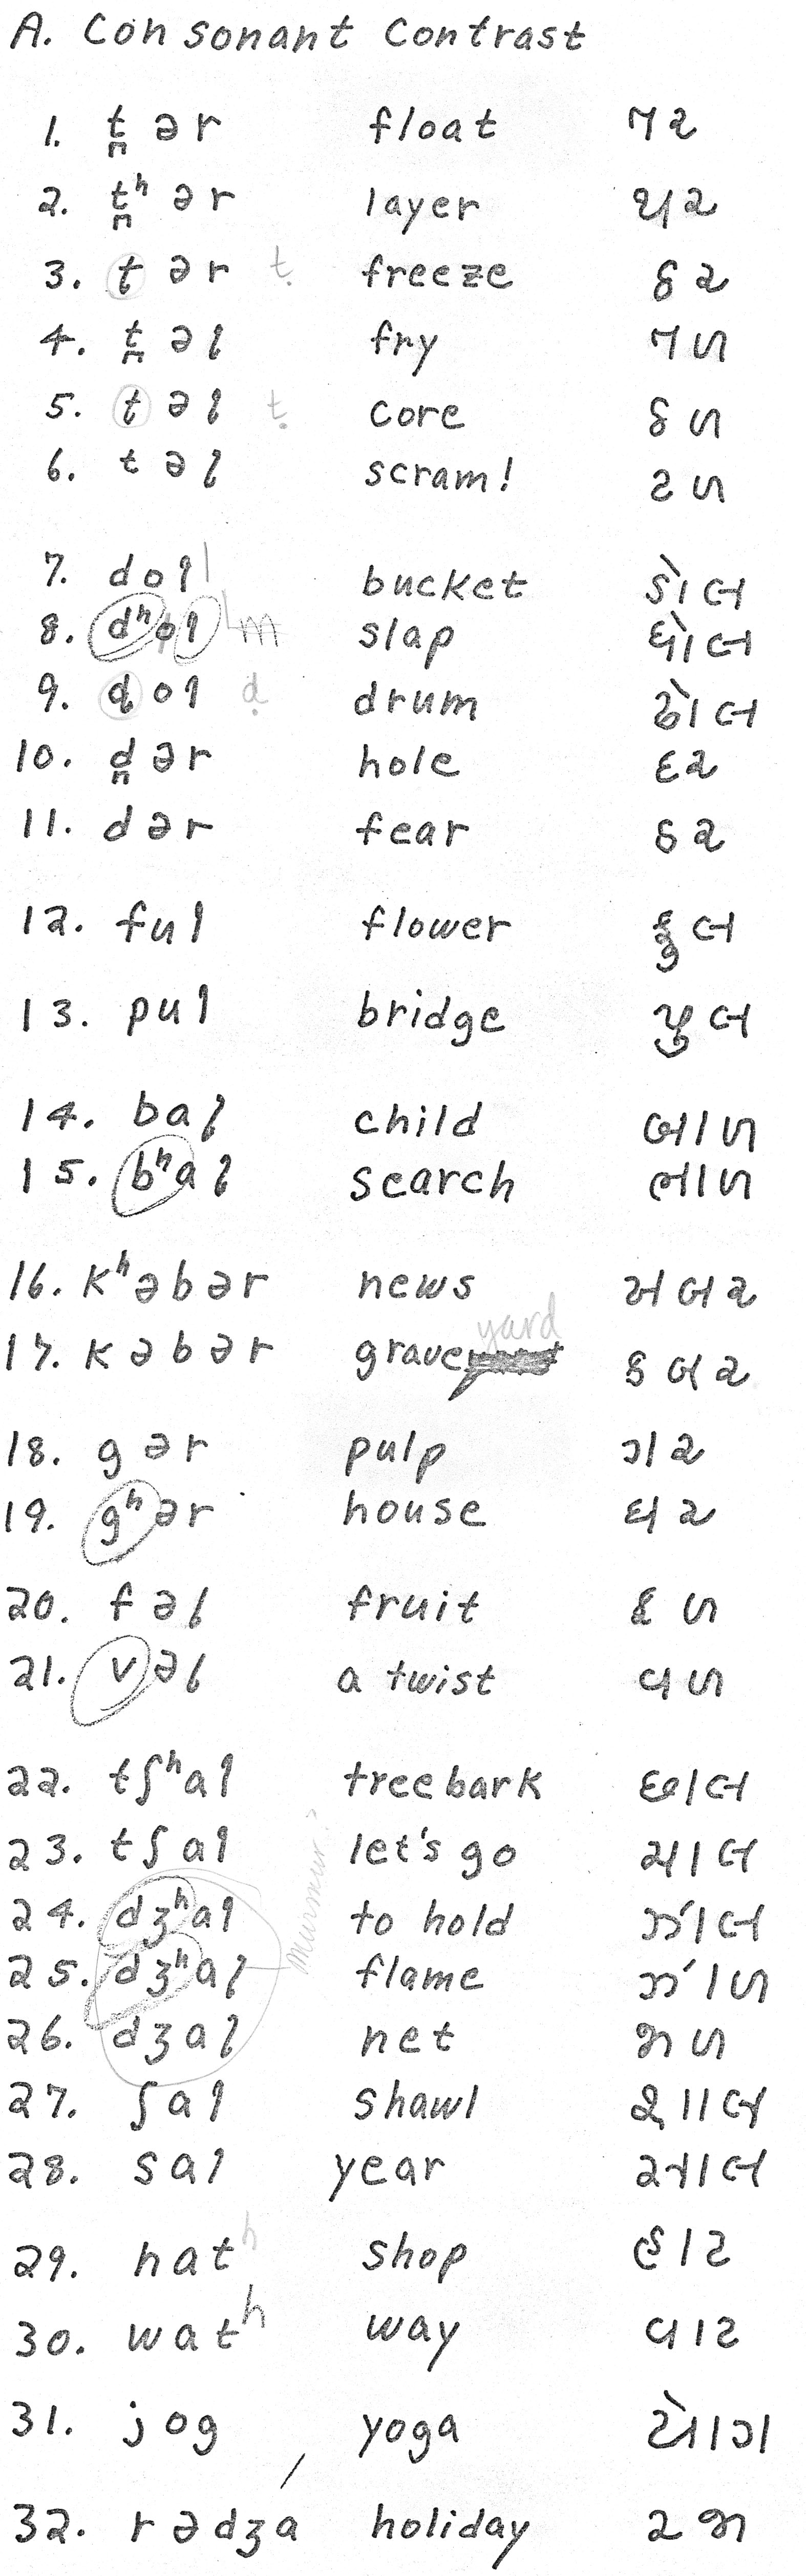 A. Consonant Contrast
1. t̪ ə r float તર
2. t̪ʰ ə r layer થર
3. t ə r ṭ freeze ઠર
4. t̪ ə ɭ fry તળ
5. t ə ɭ ṭ core ઠળ
6. t ə ɭ scram! ટળ
7. d o l l bucket ડોલ
8. dʰ o l l slap ધોલ
9. ɖ o l ḍ drum ઢોલ
10. d̪ ə r hole દર
11. d ə r fear ડર
12. f u l flower ફુલ
13. p u l bridge પુલ
14. b a ɭ child બાળ
15. bʰ a ɭ search ભાળ
16. kʰ ə b ə r news ખબર
17. k ə b ə r grave yard કબર
18. g ə r pulp ગર
19. gʰ ə r house ઘર
20. f ə ɭ fruit ફળ
21. v ə ɭ a twist વળ
22. tʃʰ a l treebark છાલ
23. tʃ a l let's go ચાલ
24. dʒʰ a l to hold ઝાલ
25. dʒʰ a ɭ murmur? flame ઝાળ
26. dʒ a ɭ net જાળ
27. ʃ a l shawl શાલ
28. s a l year સાલ
29. h a t h shop હાટ
30. w a t h way વાટ
31. j o g yoga યોગ
32. r ə dʒ a holiday રજા